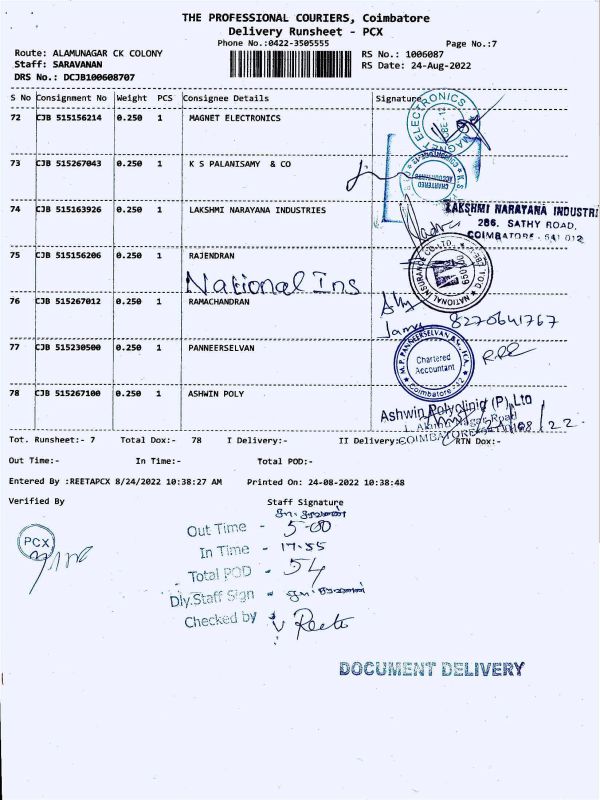 THE PROFESSIONAL COURIERS, Coimbatore
Delivery Runsheet - PCX
Phone No.:0422-3505555
Page No.:7
Route: ALAMUNAGAR CK COLONY
RS No.: 1006087
Staff: SARAVANAN
RS Date: 24-Aug-2022
DRS No.: DCJB100608707
S No Consignment No Weight PCS Consignee Details Signature
72 CJB 515156214 0.250 1 MAGNET ELECTRONICS
MAGNET ELECTRONICS
73 CJB 515267043 0.250 1 K S PALANISAMY & CO
CHARTERED ACCOUNTANTS
74 CJB 515163926 0.250 1 LAKSHMI NARAYANA INDUSTRIES
LAKSHMI NARAYANA INDUSTRI
286, SATHY ROAD,
COIMBATORE - 641 012
75 CJB 515156206 0.250 1 RAJENDRAN
National Ins
NATIONAL INSURANCE CO. LTD.
76 CJB 515267012 0.250 1 RAMACHANDRAN
8270641767
77 CJB 515230500 0.250 1 PANNEERSELVAN
M.P. PANNEERSELVAN
Chartered
Accountant
Coimbatore
78 CJB 515267100 0.250 1 ASHWIN POLY
Ashwin Polyclinic (P) Ltd
Alamu Nagar Road
COIMBATORE
Tot. Runsheet:- 7 Total Dox:- 78 I Delivery:- II Delivery: RTN Dox:-
Out Time:- In Time:- Total POD:-
Entered By :REETAPCX 8/24/2022 10:38:27 AM Printed On: 24-08-2022 10:38:48
Verified By Staff Signature
PCX
Out Time - 5-00
In Time - 17-55
Total POD - 54
Dly.Staff Sign -
Checked by Reeta
DOCUMENT DELIVERY